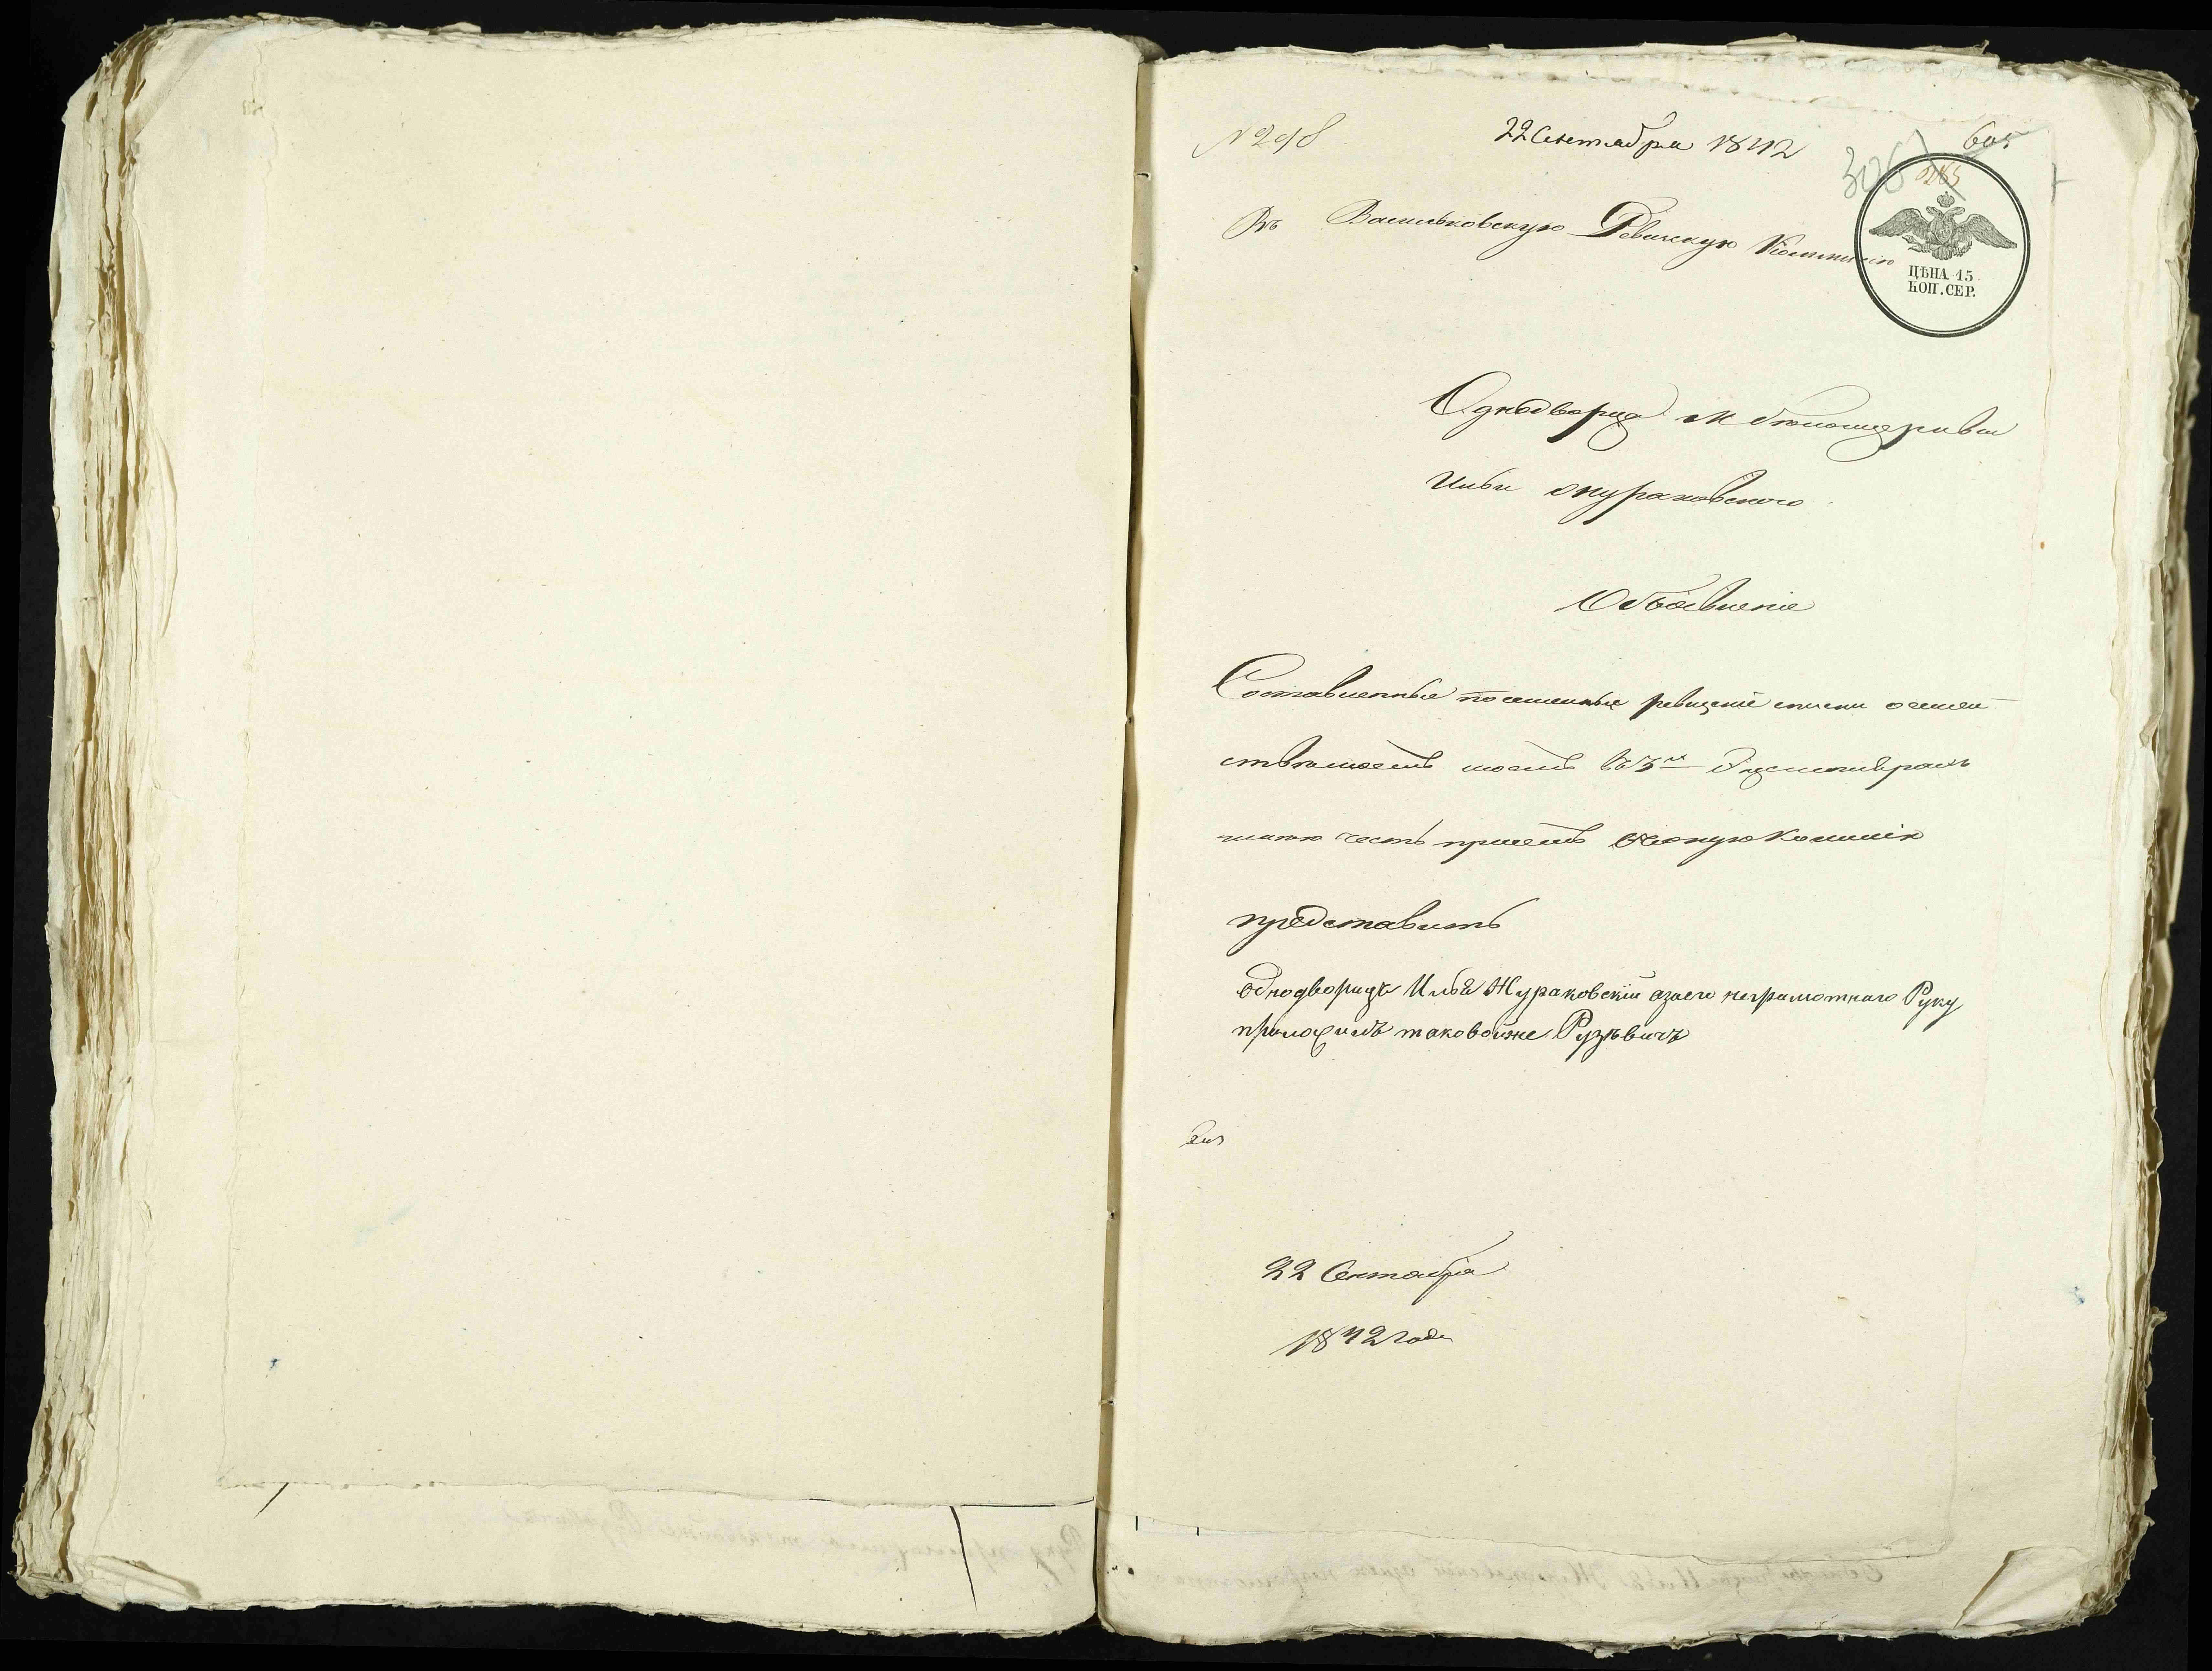 № 298
22 Сентября 1842
605
306
285
Въ Васильковскую Ревизскую Коммисію
ЦѢНА 15
КОП. СЕР.
Однодворца М Бѣлоцеркви
Ильи Жураковского
Объявленіе
Составленные посемейные ревизскіе списки о семей
ствѣ моемъ въ 3х Экземплярахъ
имѣю честь присемъ въ оную Комисію
представить
однодворецъ Илья Жураковскій азаего неграмотнаго Руку
приложилъ таковойже Рузѣвичъ
22 Сентября
1842 года